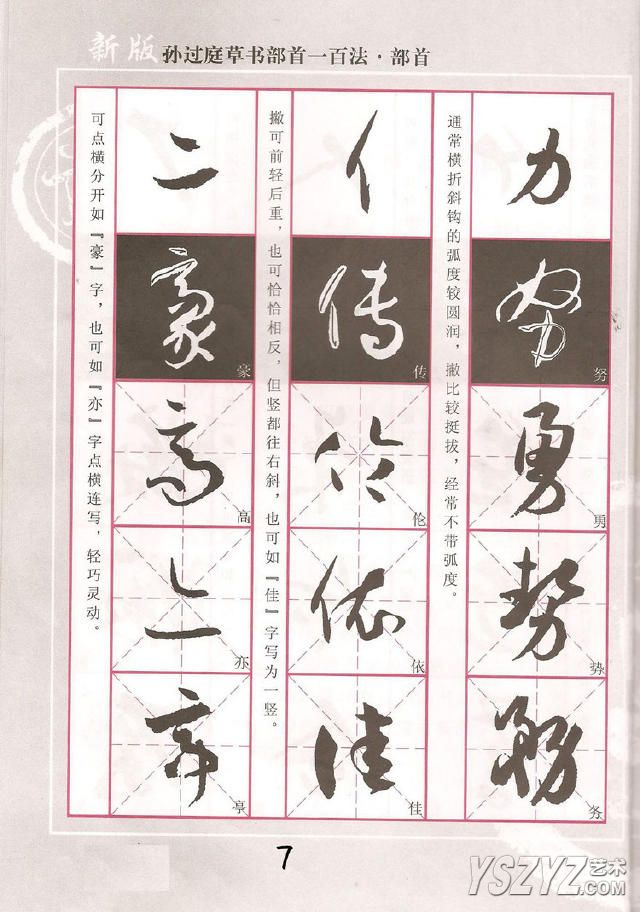 新版 孙过庭草书部首一百法·部首
力
努
勇
势
务
通常横折斜钩的弧度较圆润，撇比较挺拔，经常不带弧度。
亻
传
伦
依
佳
撇可前轻后重，也可恰恰相反，但竖都往右斜，也可如『佳』字写为一竖。
亠
豪
高
亦
亭
可点横分开如『豪』字，也可如『亦』字点横连写，轻巧灵动。
7
YSZYZ 艺术
.COM